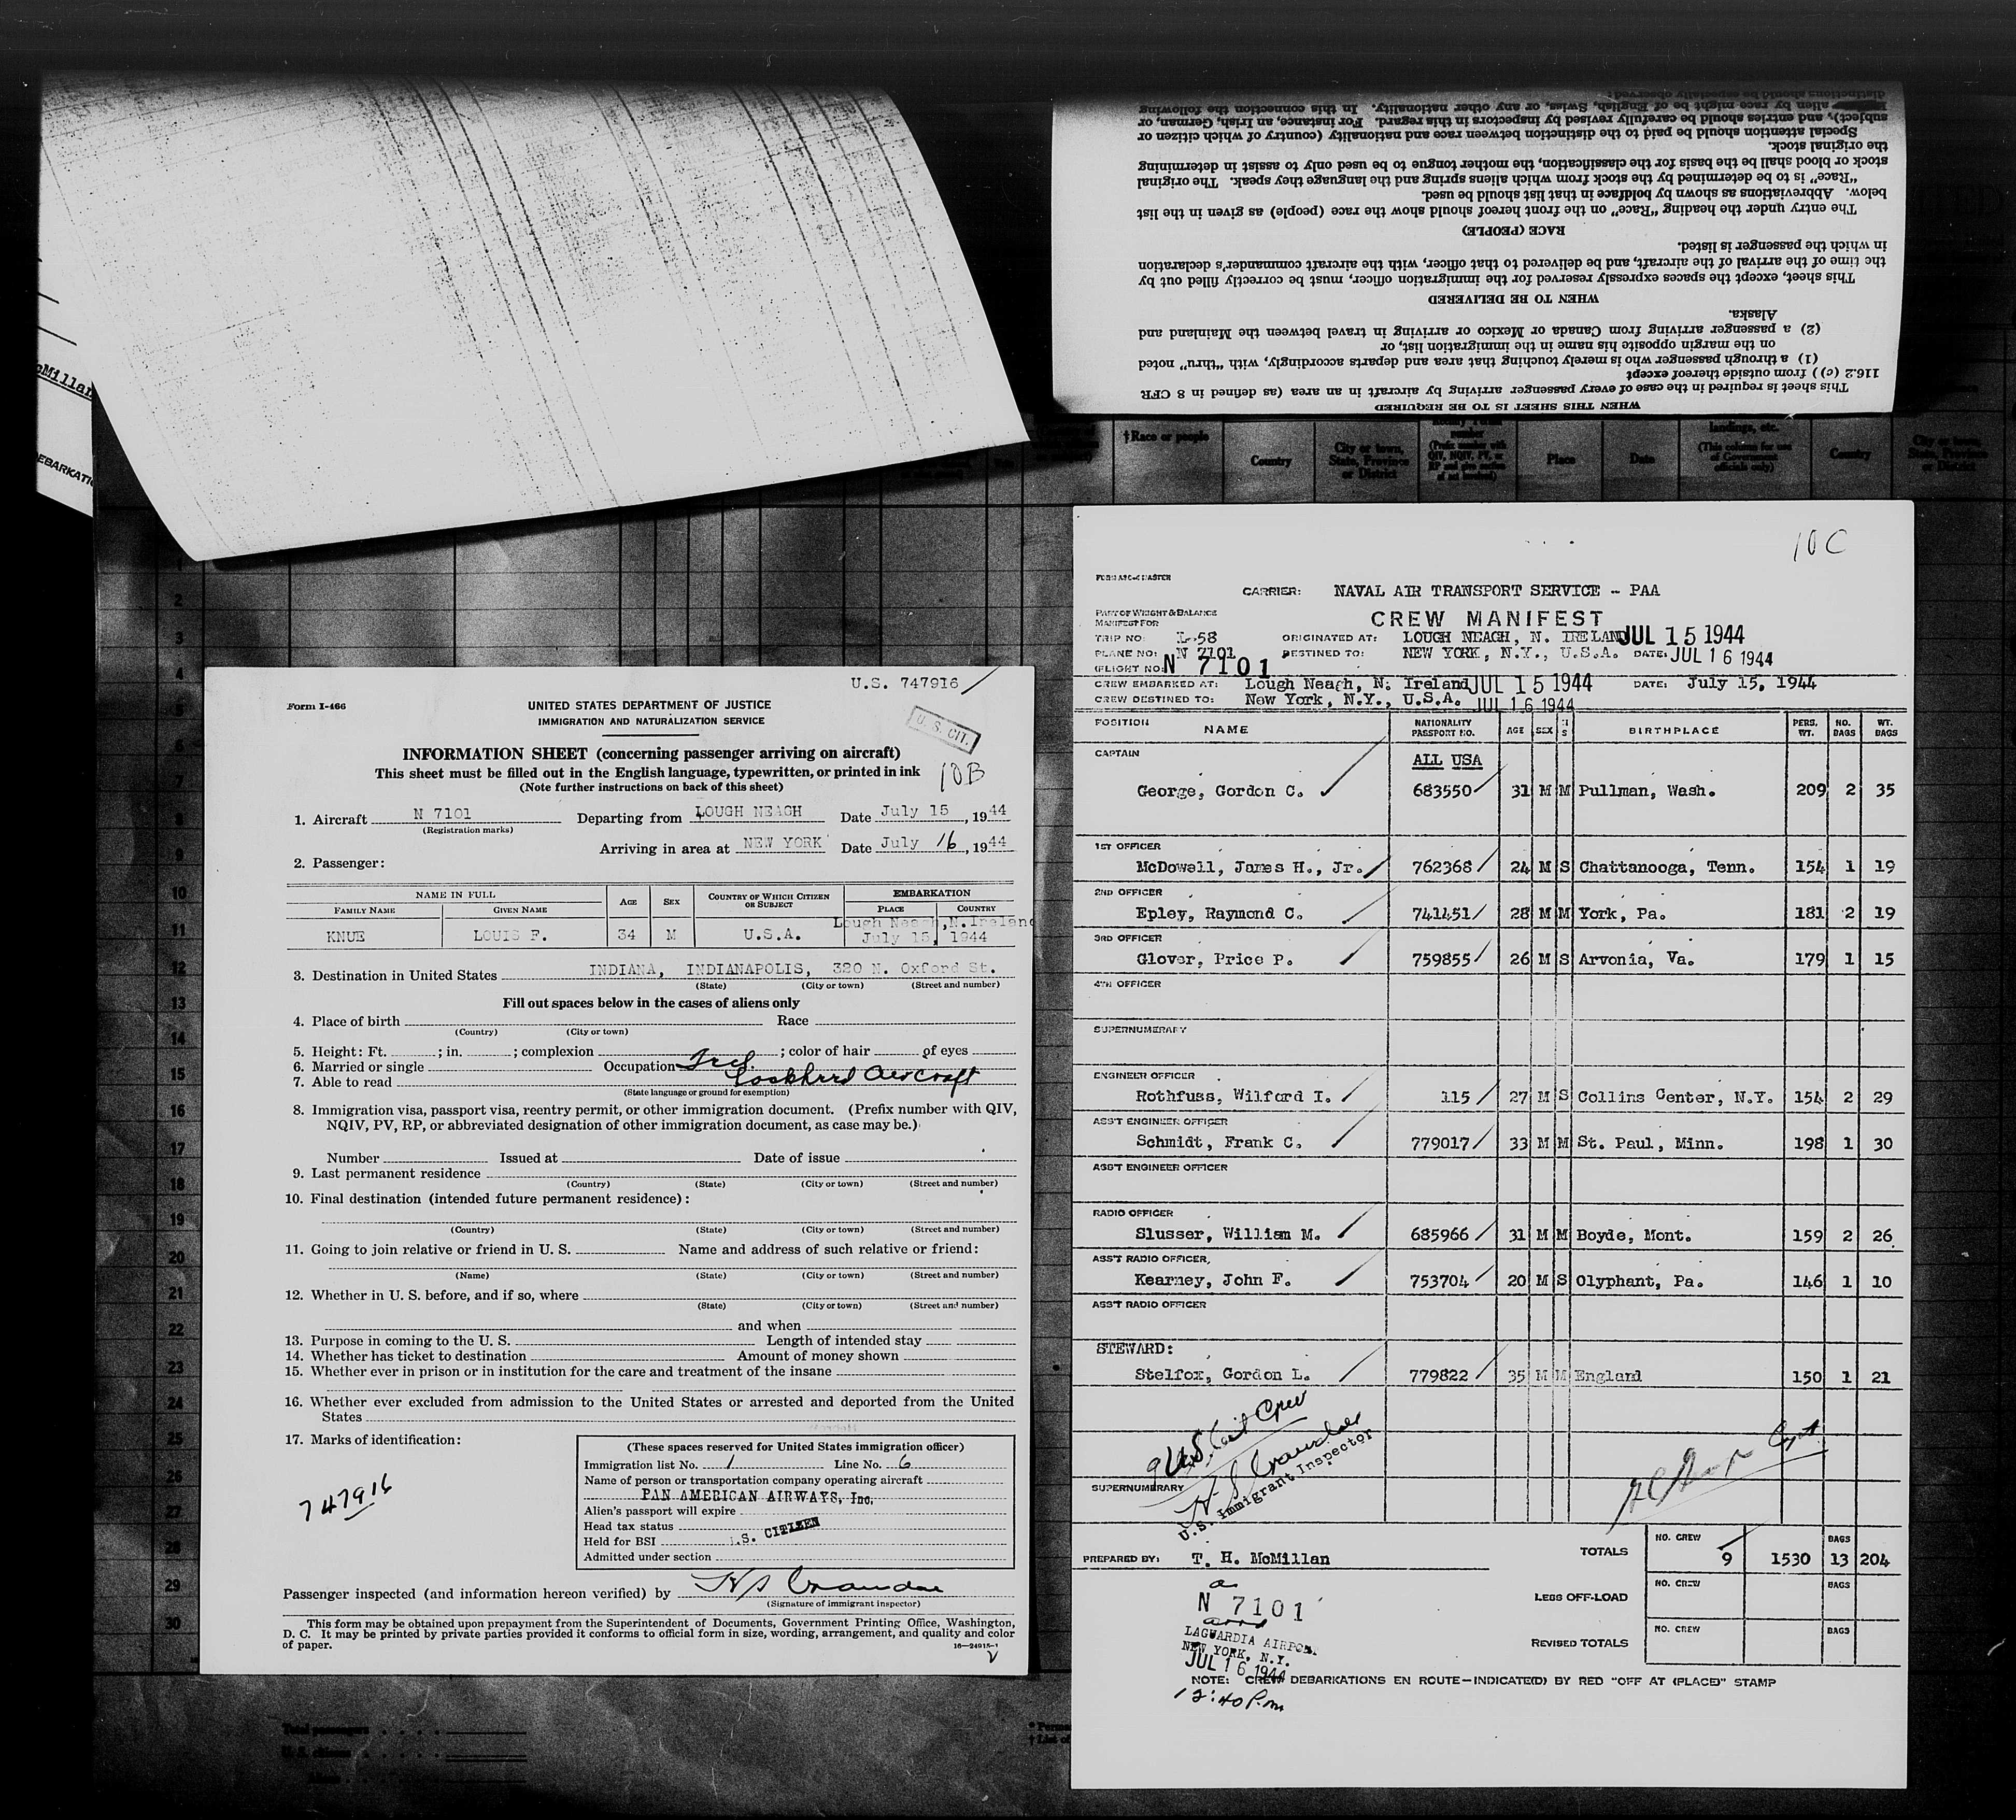 U.S. 747916
Form I-466
UNITED STATES DEPARTMENT OF JUSTICE
IMMIGRATION AND NATURALIZATION SERVICE
U.S. CIT.
INFORMATION SHEET (concerning passenger arriving on aircraft)
This sheet must be filled out in the English language, typewritten, or printed in ink
(Note further instructions on back of this sheet)
10B
1. Aircraft N 7101 Departing from LOUGH NEAGH Date July 15, 1944
(Registration marks)
Arriving in area at NEW YORK Date July 16, 1944
2. Passenger:
NAME IN FULL AGE SEX COUNTRY OF WHICH CITIZEN OR SUBJECT EMBARKATION
FAMILY NAME GIVEN NAME PLACE COUNTRY
Lough Neagh, N. Ireland
KNUE LOUIS F. 34 M U.S.A. July 15, 1944
3. Destination in United States INDIANA, INDIANAPOLIS, 320 N. Oxford St.
(State) (City or town) (Street and number)
Fill out spaces below in the cases of aliens only
4. Place of birth Race
(Country) (City or town)
5. Height: Ft. ; in. ; complexion ; color of hair of eyes
6. Married or single Occupation
7. Able to read Lockheed Aircraft
(State language or ground for exemption)
8. Immigration visa, passport visa, reentry permit, or other immigration document. (Prefix number with QIV,
NQIV, PV, RP, or abbreviated designation of other immigration document, as case may be.)
Number Issued at Date of issue
9. Last permanent residence
(Country) (State) (City or town) (Street and number)
10. Final destination (intended future permanent residence):
(Country) (State) (City or town) (Street and number)
11. Going to join relative or friend in U. S. Name and address of such relative or friend:
(Name) (State) (City or town) (Street and number)
12. Whether in U. S. before, and if so, where
(State) (City or town) (Street and number)
and when
13. Purpose in coming to the U. S. Length of intended stay
14. Whether has ticket to destination Amount of money shown
15. Whether ever in prison or in institution for the care and treatment of the insane
16. Whether ever excluded from admission to the United States or arrested and deported from the United
States
17. Marks of identification:
747916
(These spaces reserved for United States immigration officer)
Immigration list No. 1 Line No. 6
Name of person or transportation company operating aircraft
PAN AMERICAN AIRWAYS, Inc.
Alien's passport will expire
Head tax status
Held for BSI U.S. CITIZEN
Admitted under section
Passenger inspected (and information hereon verified) by
(Signature of immigrant inspector)
This form may be obtained upon prepayment from the Superintendent of Documents, Government Printing Office, Washington,
D. C. It may be printed by private parties provided it conforms to official form in size, wording, arrangement, and quality and color
of paper.
16—24915-1
WHEN THIS SHEET IS TO BE REQUIRED
This sheet is required in the case of every passenger arriving by aircraft in an area (as defined in 8 CFR
116.2 (c)) from outside thereof except
(1) a through passenger who is merely touching that area and departs accordingly, with "thru" noted
on the margin opposite his name in the immigration list, or
(2) a passenger arriving from Canada or Mexico or arriving in travel between the Mainland and
Alaska.
WHEN TO BE DELIVERED
This sheet, except the spaces expressly reserved for the immigration officer, must be correctly filled out by
the time of the arrival of the aircraft, and be delivered to that officer, with the aircraft commander's declaration
in which the passenger is listed.
RACE (PEOPLE)
The entry under the heading "Race" on the front hereof should show the race (people) as given in the list
below. Abbreviations as shown by boldface in that list should be used.
"Race" is to be determined by the stock from which aliens spring and the language they speak. The original
stock or blood shall be the basis for the classification, the mother tongue to be used only to assist in determining
the original stock.
Special attention should be paid to the distinction between race and nationality (country of which citizen or
subject), and entries should be carefully revised by inspectors in this regard. For instance, an Irish, German, or
alien by race might be of English, Swiss, or any other nationality. In this connection the following
distinctions should be especially observed:
†Race or people
Country
City or town, State, Province or District
Place
Date
landings, etc.
(This column for use of Government officials only)
Country
City or town, State, Province or District
10 C
CARRIER: NAVAL AIR TRANSPORT SERVICE - PAA
PART OF WEIGHT & BALANCE
MANIFEST FOR
CREW MANIFEST
TRIP NO: L-58 ORIGINATED AT: LOUGH NEAGH, N. IRELAND JUL 15 1944
PLANE NO: N 7101 DESTINED TO: NEW YORK, N.Y., U.S.A. DATE: JUL 16 1944
(FLIGHT NO) N 7101
CREW EMBARKED AT: Lough Neagh, N. Ireland JUL 15 1944 DATE: July 15, 1944
CREW DESTINED TO: New York, N.Y., U.S.A. JUL 16 1944
POSITION NAME NATIONALITY PASSPORT NO. AGE SEX M S BIRTHPLACE PERS. WT. NO. BAGS WT. BAGS
CAPTAIN ALL USA
George, Gordon C. 683550 31 M M Pullman, Wash. 209 2 35
1ST OFFICER
McDowell, James H., Jr. 762368 24 M S Chattanooga, Tenn. 154 1 19
2ND OFFICER
Epley, Raymond C. 741451 28 M M York, Pa. 181 2 19
3RD OFFICER
Glover, Price P. 759855 26 M S Arvonia, Va. 179 1 15
4TH OFFICER
SUPERNUMERARY
ENGINEER OFFICER
Rothfuss, Wilford I. 115 27 M S Collins Center, N.Y. 154 2 29
ASS'T ENGINEER OFFICER
Schmidt, Frank C. 779017 33 M M St. Paul, Minn. 198 1 30
ASS'T ENGINEER OFFICER
RADIO OFFICER
Slusser, William M. 685966 31 M M Boyde, Mont. 159 2 26
ASS'T RADIO OFFICER
Kearney, John F. 753704 20 M S Olyphant, Pa. 146 1 10
ASS'T RADIO OFFICER
STEWARD:
Stelfox, Gordon L. 779822 35 M M England 150 1 21
9 U.S. Cit Crew
U.S. Immigrant Inspector
SUPERNUMERARY
PREPARED BY: T. H. McMillan
TOTALS NO. CREW 9 1530 BAGS 13 204
LEGS OFF-LOAD NO. CREW BAGS
REVISED TOTALS NO. CREW BAGS
N 7101
LAGUARDIA AIRPORT
NEW YORK, N.Y.
JUL 16 1944
NOTE: CREW DEBARKATIONS EN ROUTE—INDICATE(D) BY RED "OFF AT (PLACE)" STAMP
12:40 P.m
1
2
3
4
5
6
7
8
9
10
11
12
13
14
15
16
17
18
19
20
21
22
23
24
25
26
27
28
29
30
Total passengers
U. S. citizens